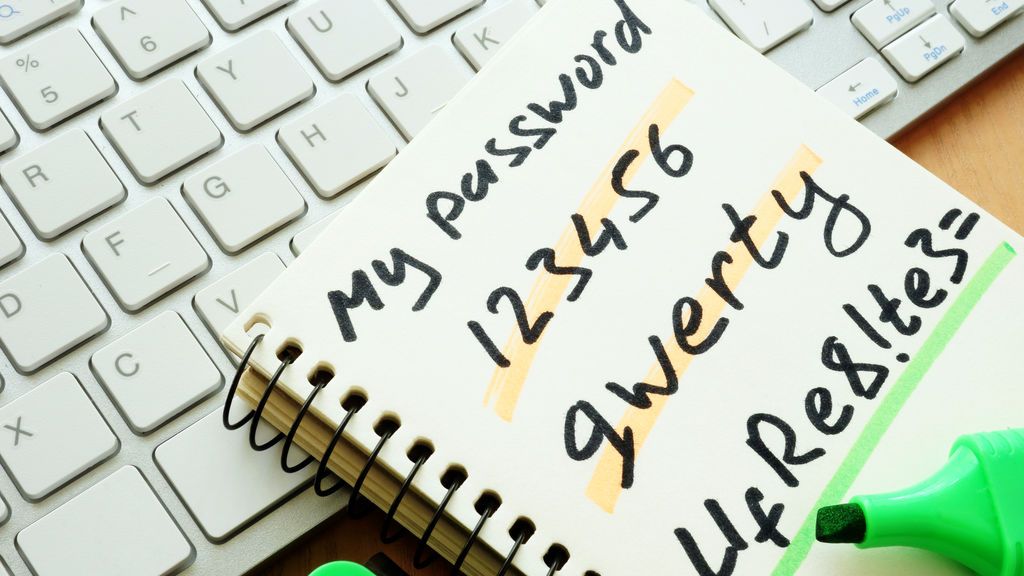 My password
123456
qwerty
U
K
^
6
Y
J
%
5
T
H
R
G
F
V
D
C
X
PgUp
PgDn
Home
End